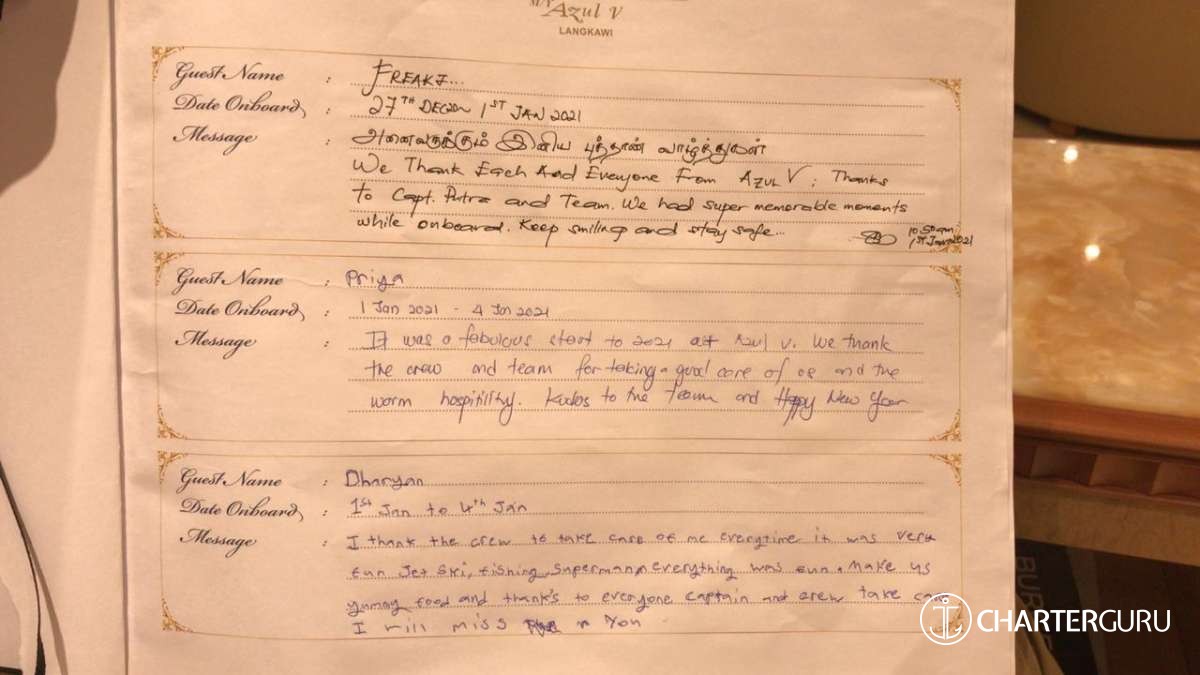 M/Y
Azul V
LANGKAWI
Guest Name : FREAKZ...
Date Onboard : 27TH DEC20 1ST JAN 2021
Message : அனைவருக்கும் இனிய புத்தாண் வாழ்த்துகள்
We Thank Each And Everyone From AZUL V; Thanks
to Capt. Putra and Team. We had super memorable moments
while onboard. Keep smiling and stay safe...
10.50am
1ST Jan 2021
Guest Name : Priya
Date Onboard : 1 Jan 2021 - 4 Jan 2021
Message : It was a fabulous start to 2021 at Azul V. We thank
the crew and team for taking a good care of us and the
warm hospitility. Kudos to the team and Happy New Year
Guest Name : Dharyan
Date Onboard : 1st Jan to 4th Jan
Message : I thank the crew to take care of me everytime it was very
fun Jet Ski, fishing, superman, everything was fun. Make us
yummy food and thank's to everyone captain and crew take care
I will miss You
BUR
CHARTERGURU